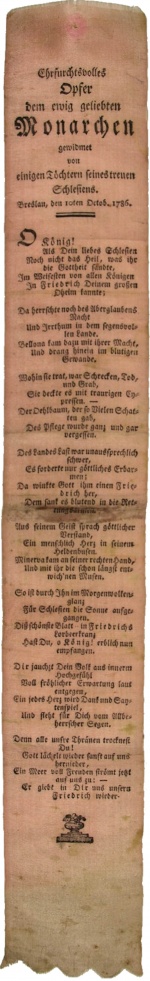 Ehrfurchtsvolles
Opfer
dem ewig geliebten
Monarchen
gewidmet
von
einigen Töchtern seines treuen
Schlesiens.
Breslau, den 10ten Octob. 1786.
O König!
Als Dein liebes Schlesien
Noch nicht das Heil, was ihr
die Gottheit sandte,
Im Weisesten von allen Königen
In Friedrich Deinem großen
Oheim kannte;
Da herrschte noch des Aberglaubens
Macht
Und Irrthum in dem segensvol-
len Lande.
Bellona kam dazu mit ihrer Macht,
Und drang hinein im blutigen
Gewande.
Wohin sie trat, war Schrecken, Tod,
und Grab,
Sie deckte es mit traurigen Cy-
pressen. —
Der Oehlbaum, der so Vielen Schat-
ten gab,
Des Pflege wurde ganz und gar
vergessen.
Des Landes Last war unaussprechlich
schwer,
Es forderte nur göttliches Erbar-
men;
Da winkte Gott ihm einen Frie-
drich her,
Dem sank es blutend in die Ret-
Aus seinem Geist sprach göttlicher
Verstand,
Ein menschlich Herz in seinem
Heldenbusen.
Minerva kam an seiner rechten Hand,
Und mit ihr die schon längst ent-
wich'nen Musen.
So ist durch Ihn im Morgenwolken-
glanz
Für Schlesien die Sonne aufge-
gangen.
Diß schönste Blatt in Friedrichs
Lorbeerkranz
Hast Du, o König! erblich nun
empfangen.
Dir jauchzt Dein Volk aus innerm
Hochgefühl
Voll fröhlicher Erwartung laut
entgegen,
Ein jedes Herz wird Dank und Say-
tenspiel,
Und fleht für Dich vom Allbe-
herrscher Segen.
Denn alle unsre Thränen trocknest
Du!
Gott lächelt wieder sanft auf uns
hernieder,
Ein Meer voll Freuden strömt jetzt
auf uns zu: —
Er giebt in Dir uns unsern
Friedrich wieder.